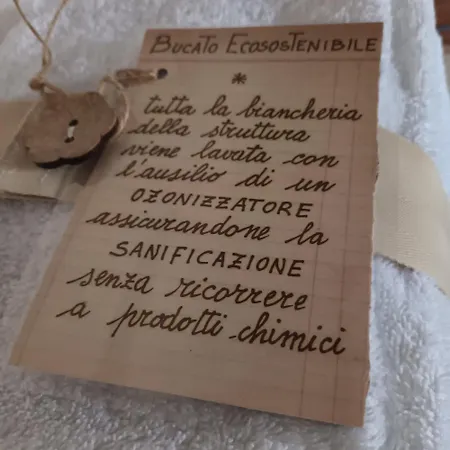 BUCATO ECOSOSTENIBILE
*
tutta la biancheria
della struttura
viene lavata con
l'ausilio di un
OZONIZZATORE
assicurandone la
SANIFICAZIONE
senza ricorrere
a prodotti chimici